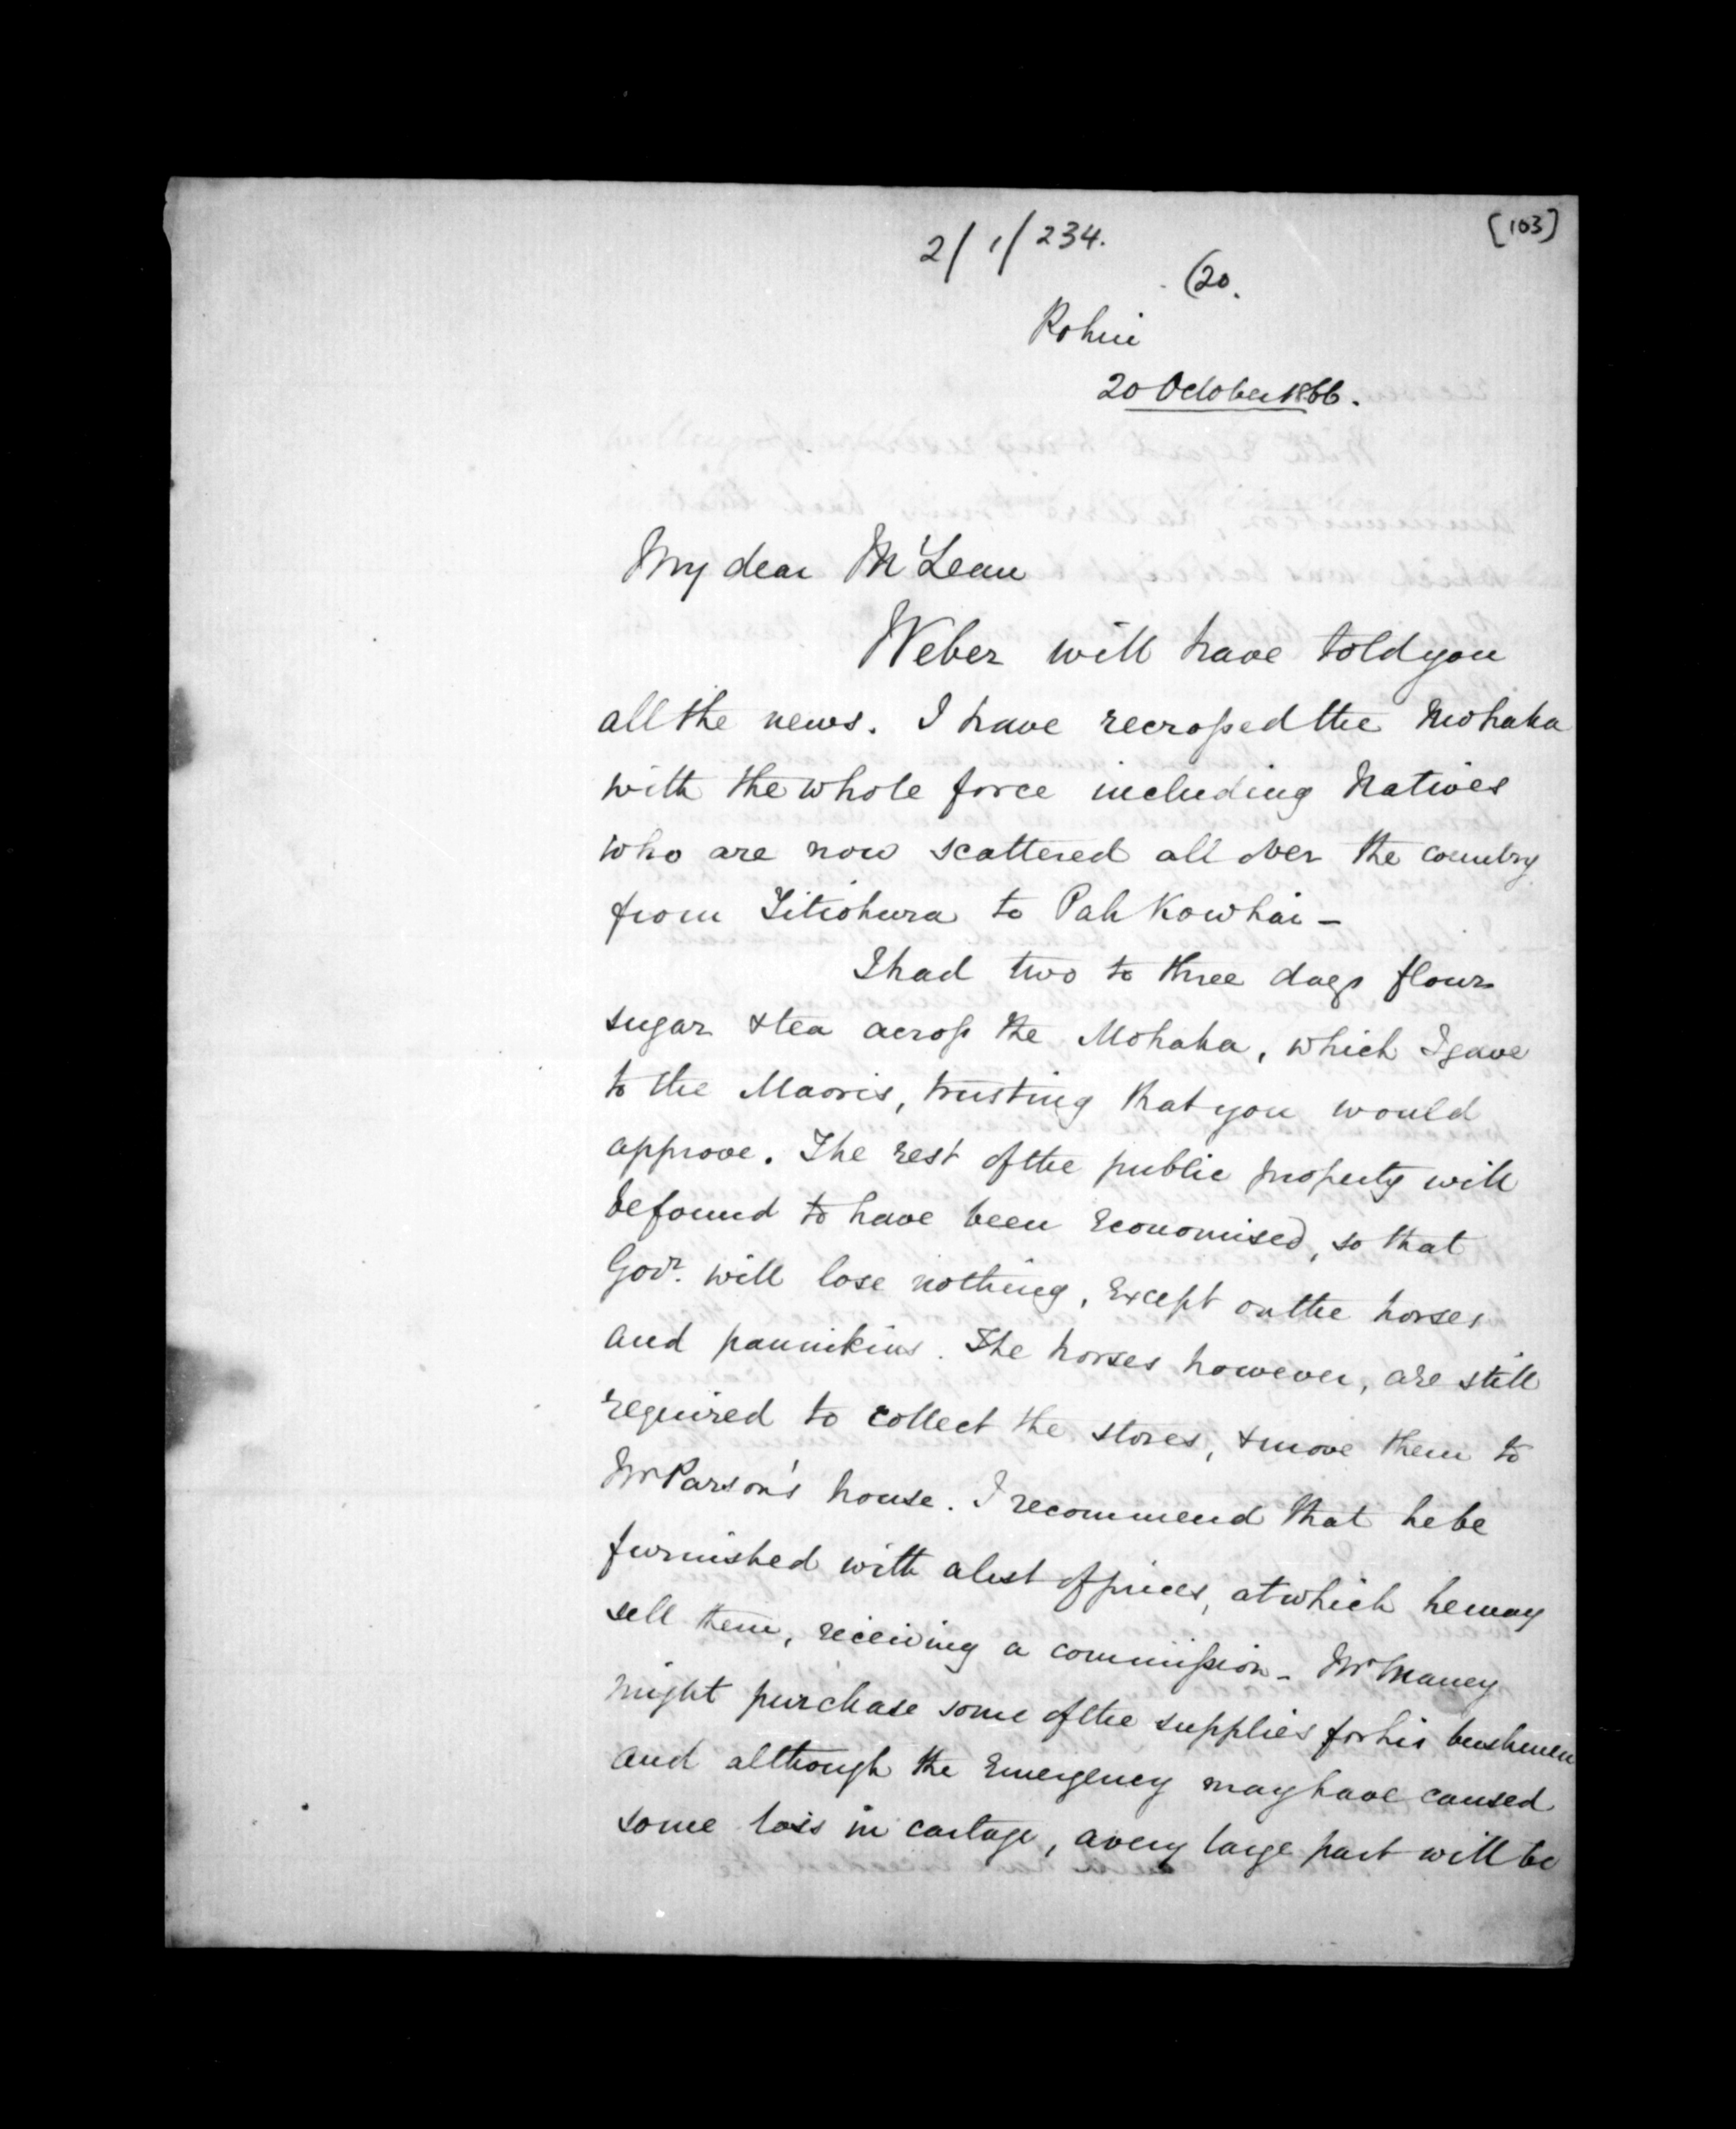 2/1/234.
[103]
(20.
Pohui
20 October 1866.
My dear McLean
Weber will have told you
all the news. I have recrossed the Mohaka
with the whole force including Natives
who are now scattered all over the country
from Titiohura to Pah Kowhai -
I had two to three days flour
sugar & tea across the Mohaka, which I gave
to the Maoris, trusting that you would
approve. The rest of the public property will
be found to have been economised, so that
Govt. will lose nothing, except on the horses
and pannikins. The horses however, are still
required to collect the stores, & move them to
Mr Parson's house. I recommend that he be
furnished with a list of prices, at which he may
sell them, receiving a commission - Mr Maney
might purchase some of the supplies for his bushmen
and although the emergency may have caused
some loss in cartage, a very large part will be